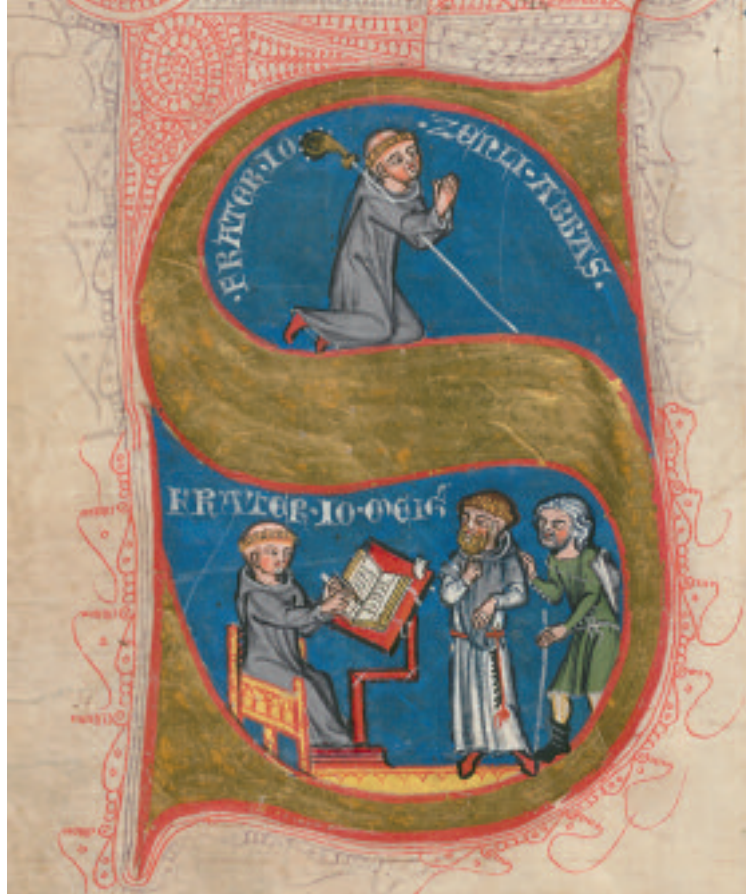 ·FRATER·IO ·ZENLI·ABBAS·
FRATER·IO·MEIG